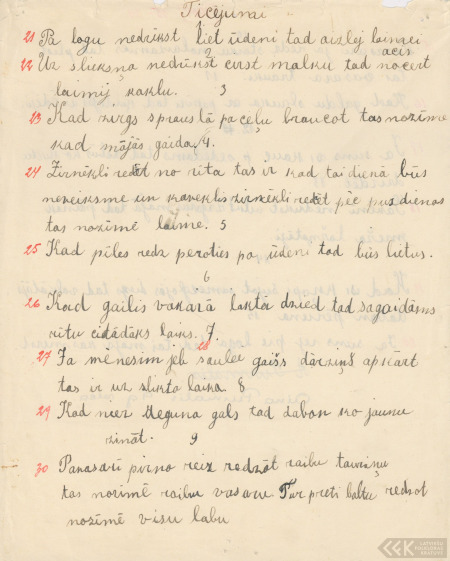 Ticējumi
21 Pa logu nedrīkst liet ūdeni tad aizlej laimei
acis
22 Uz sliekšņa nedrīkst cirst malku tad nocert
laimij kaklu. 3
23 Kad zirgs sprauslā pa ceļu braucot tas nozīme
kad mājās gaida. 4.
24 Zirnēkli redzēt no rīta tas ir kad tai dienā būs
neveiksme un kavēklis zirnēkli redzēt pēc pusdienas
tas nozīmē laime. 5
25 Kad pīles redz peroties pa ūdeni tad būs lietus.
6
26 Kad gailis vakarā laktā dzied tad sagaidāms
rītu citādāks laiks. 7
28
27 Ja mēnesim jeb saulei gaišs dārziņš apkārt
tas ir uz slikta laika 8
29 Kad niez deguna gals tad dabon ko jaunu
zināt. 9
30 Pavasarī pirmo reiz redzot raibu tauriņu
tas nozīmē raibu vasaru. Turpreti baltu redzot
nozīmē visu labu
LFK
LATVIEŠU
FOLKLORAS
KRĀTUVE